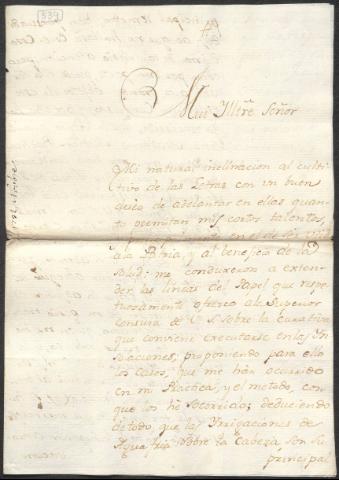 339
Mui Iltre Señor
Mi natural inclinacion al culti
tivo de las Letras con un buen
deseo de adelantar en ellas quan-
to permitan mis cortos talentos,
a la Patria, y al beneficio de la
Salud; me conduxeron a exten-
der las lineas del Papel que respe-
tuosamente ofresco al Superior
Censura de V. S. sobre la curativa
que conviene executarse en las In
solaciones, proponiendo para ello
los Casos, que me han ocurrido
en mi Practica, y el metodo, con
que los hé socorrido; deduciendo
de todo, que las Yrrigaciones de
Agua fria sobre la Cabeza son su
principal